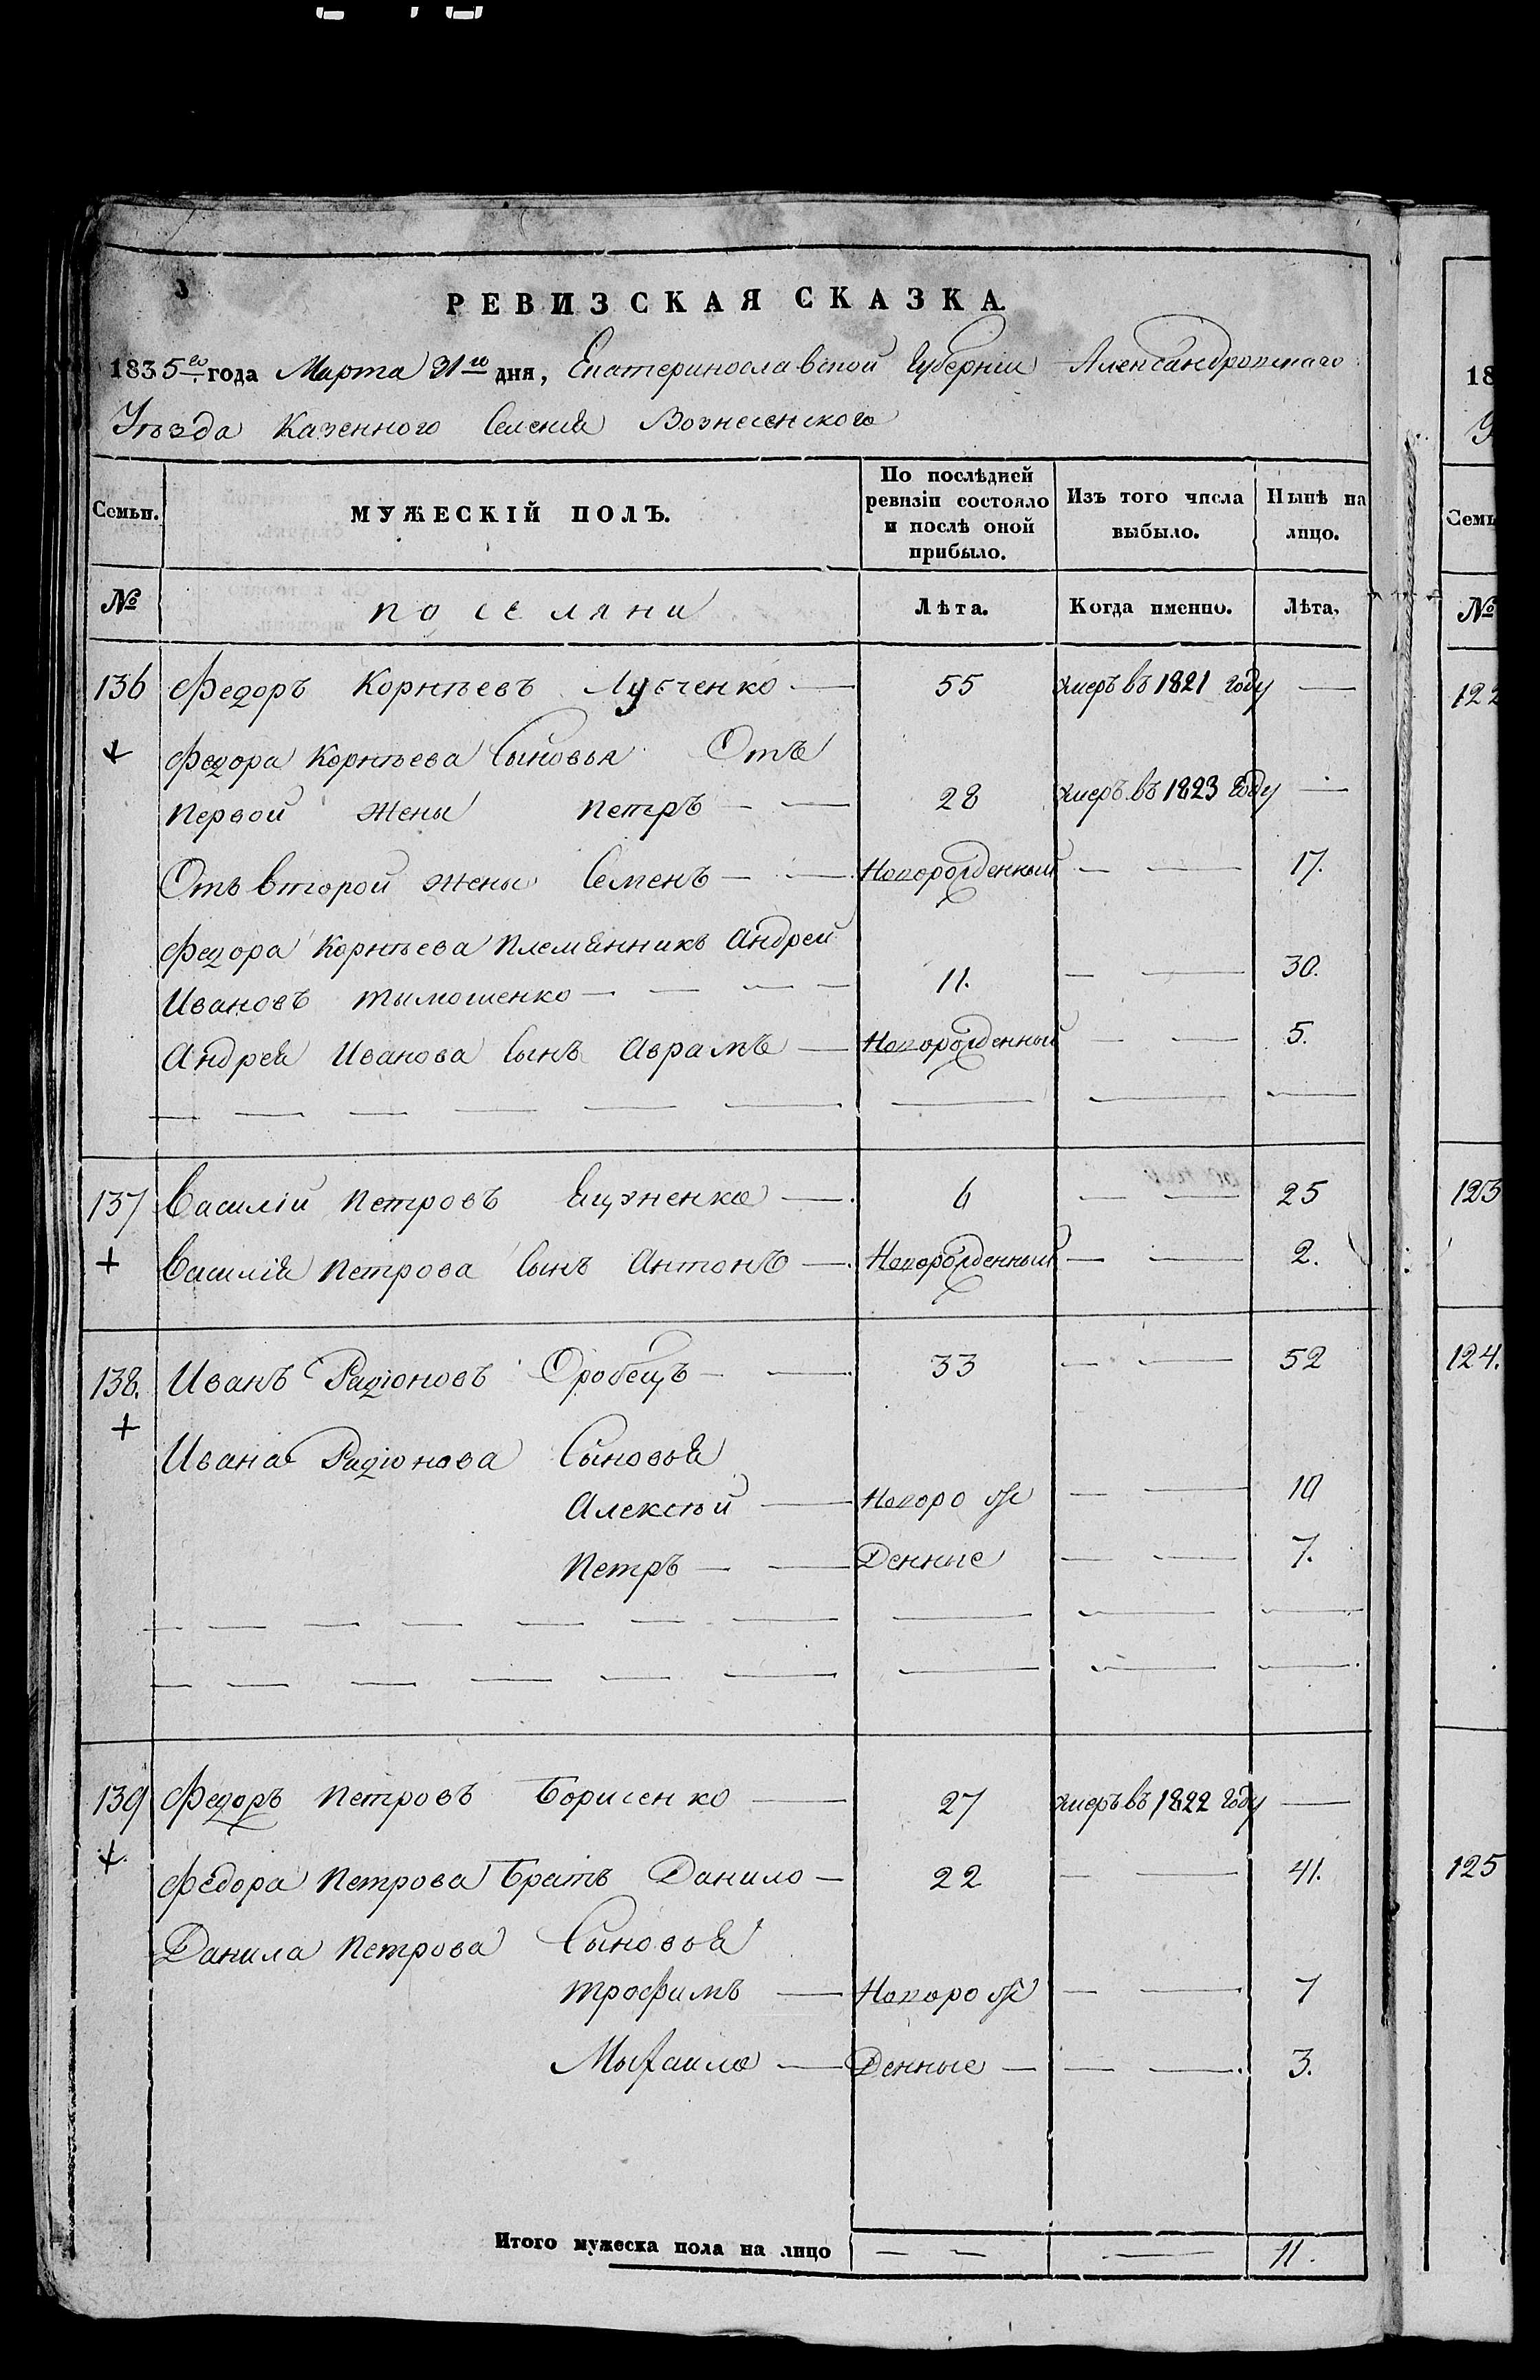 РЕВИЗСКАЯ СКАЗКА.
1835го года Марта 31го дня, Екатеринославской Губернии Александровского
Уѣзда Казенного Селенія Вознесенского
Семьи. МУЖЕСКІЙ ПОЛЪ. По послѣдней ревизіи состояло и послѣ оной прибыло. Изъ того числа выбыло. Нынѣ на лицо.
№ поселяни Лѣта. Когда именно. Лѣта.
136 Федоръ Корнѣевъ Лубченко — 55 умеръ въ 1821 году —
+ Федора Корнѣева Сыновья Отъ
первой жены Петръ — — 28 умеръ въ 1823 году —
Отъ второй жены Семенъ — — Новорожденный — — 17.
Федора Корнѣева племянникъ Андрей
Ивановъ Тымошенко — — — — 11. — — 30.
Андрея Иванова Сынъ Аврамъ — Новорожденный — — 5.
137 Василій Петровъ — 6 — — 25
+ Василія Петрова Сынъ Антонъ — Новорожденный — — 2.
138. Иванъ Радіоновъ Оробецъ — — 33 — — 52
+
Ивана Радіонова Сыновья
Алексѣй — Новорож — — 10
Петръ — — Денные — — 7.
139 Федоръ Петровъ Борисенко — 27 умеръ въ 1822 году —
+ Федора Петрова Братъ Данило — 22 — — 41.
Данила Петрова Сыновья
Трофимъ — Новорож — — 7
Мыхаило — Денные — — — 3.
Итого мужеска пола на лицо — — — 11.
18
У
Семь
№
122
123
124.
125